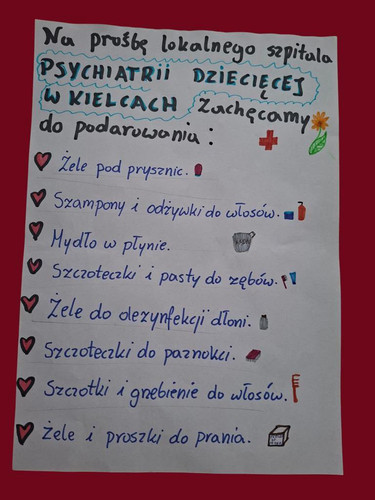 Na prośbę lokalnego szpitala
PSYCHIATRII DZIECIĘCEJ
W KIELCACH Zachęcamy
do podarowania:
Żele pod prysznic.
Szampony i odżywki do włosów.
Mydło w płynie.
Szczoteczki i pasty do zębów.
Żele do dezynfekcji dłoni.
Szczoteczki do paznokci.
Szczotki i grzebienie do włosów.
Żele i proszki do prania.